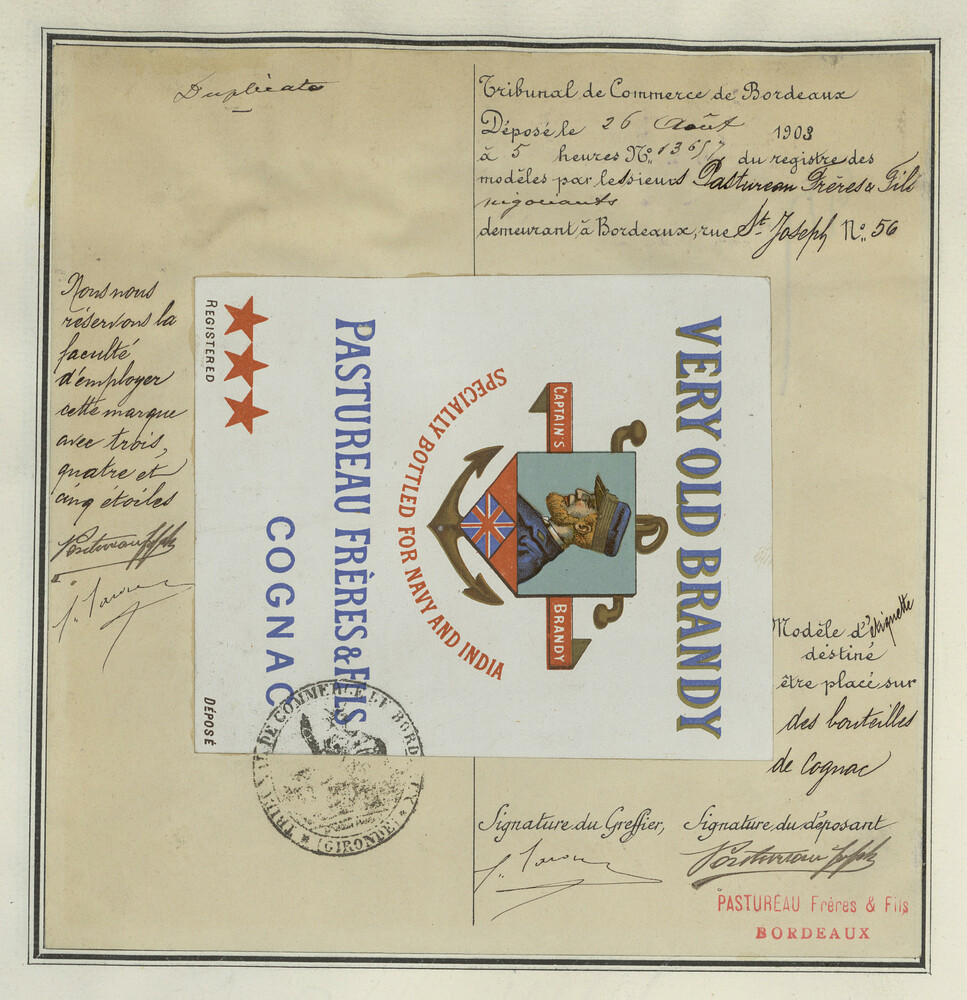 Duplicata
Tribunal de Commerce de Bordeaux
Déposé le 26 Août 1903
à 5 heures No. 13657 du registre des
modèles par les sieurs Pastureau Frères & Fils
négociants
demeurant à Bordeaux, rue St. Joseph No. 56
Nous nous
réservons la
faculté
d'employer
cette marque
avec trois,
quatre et
cinq étoiles
VERY OLD BRANDY
CAPTAIN'S
BRANDY
SPECIALLY BOTTLED FOR NAVY AND INDIA
PASTUREAU FRÈRES & FILS
COGNAC
REGISTERED
DÉPOSÉ
Modèle d'étiquette
destiné
être placé sur
des bouteilles
de Cognac
TRIBUNAL DE COMMERCE DE BORDEAUX
(GIRONDE)
Signature du Greffier,
Signature du déposant
PASTUREAU Frères & Fils
BORDEAUX